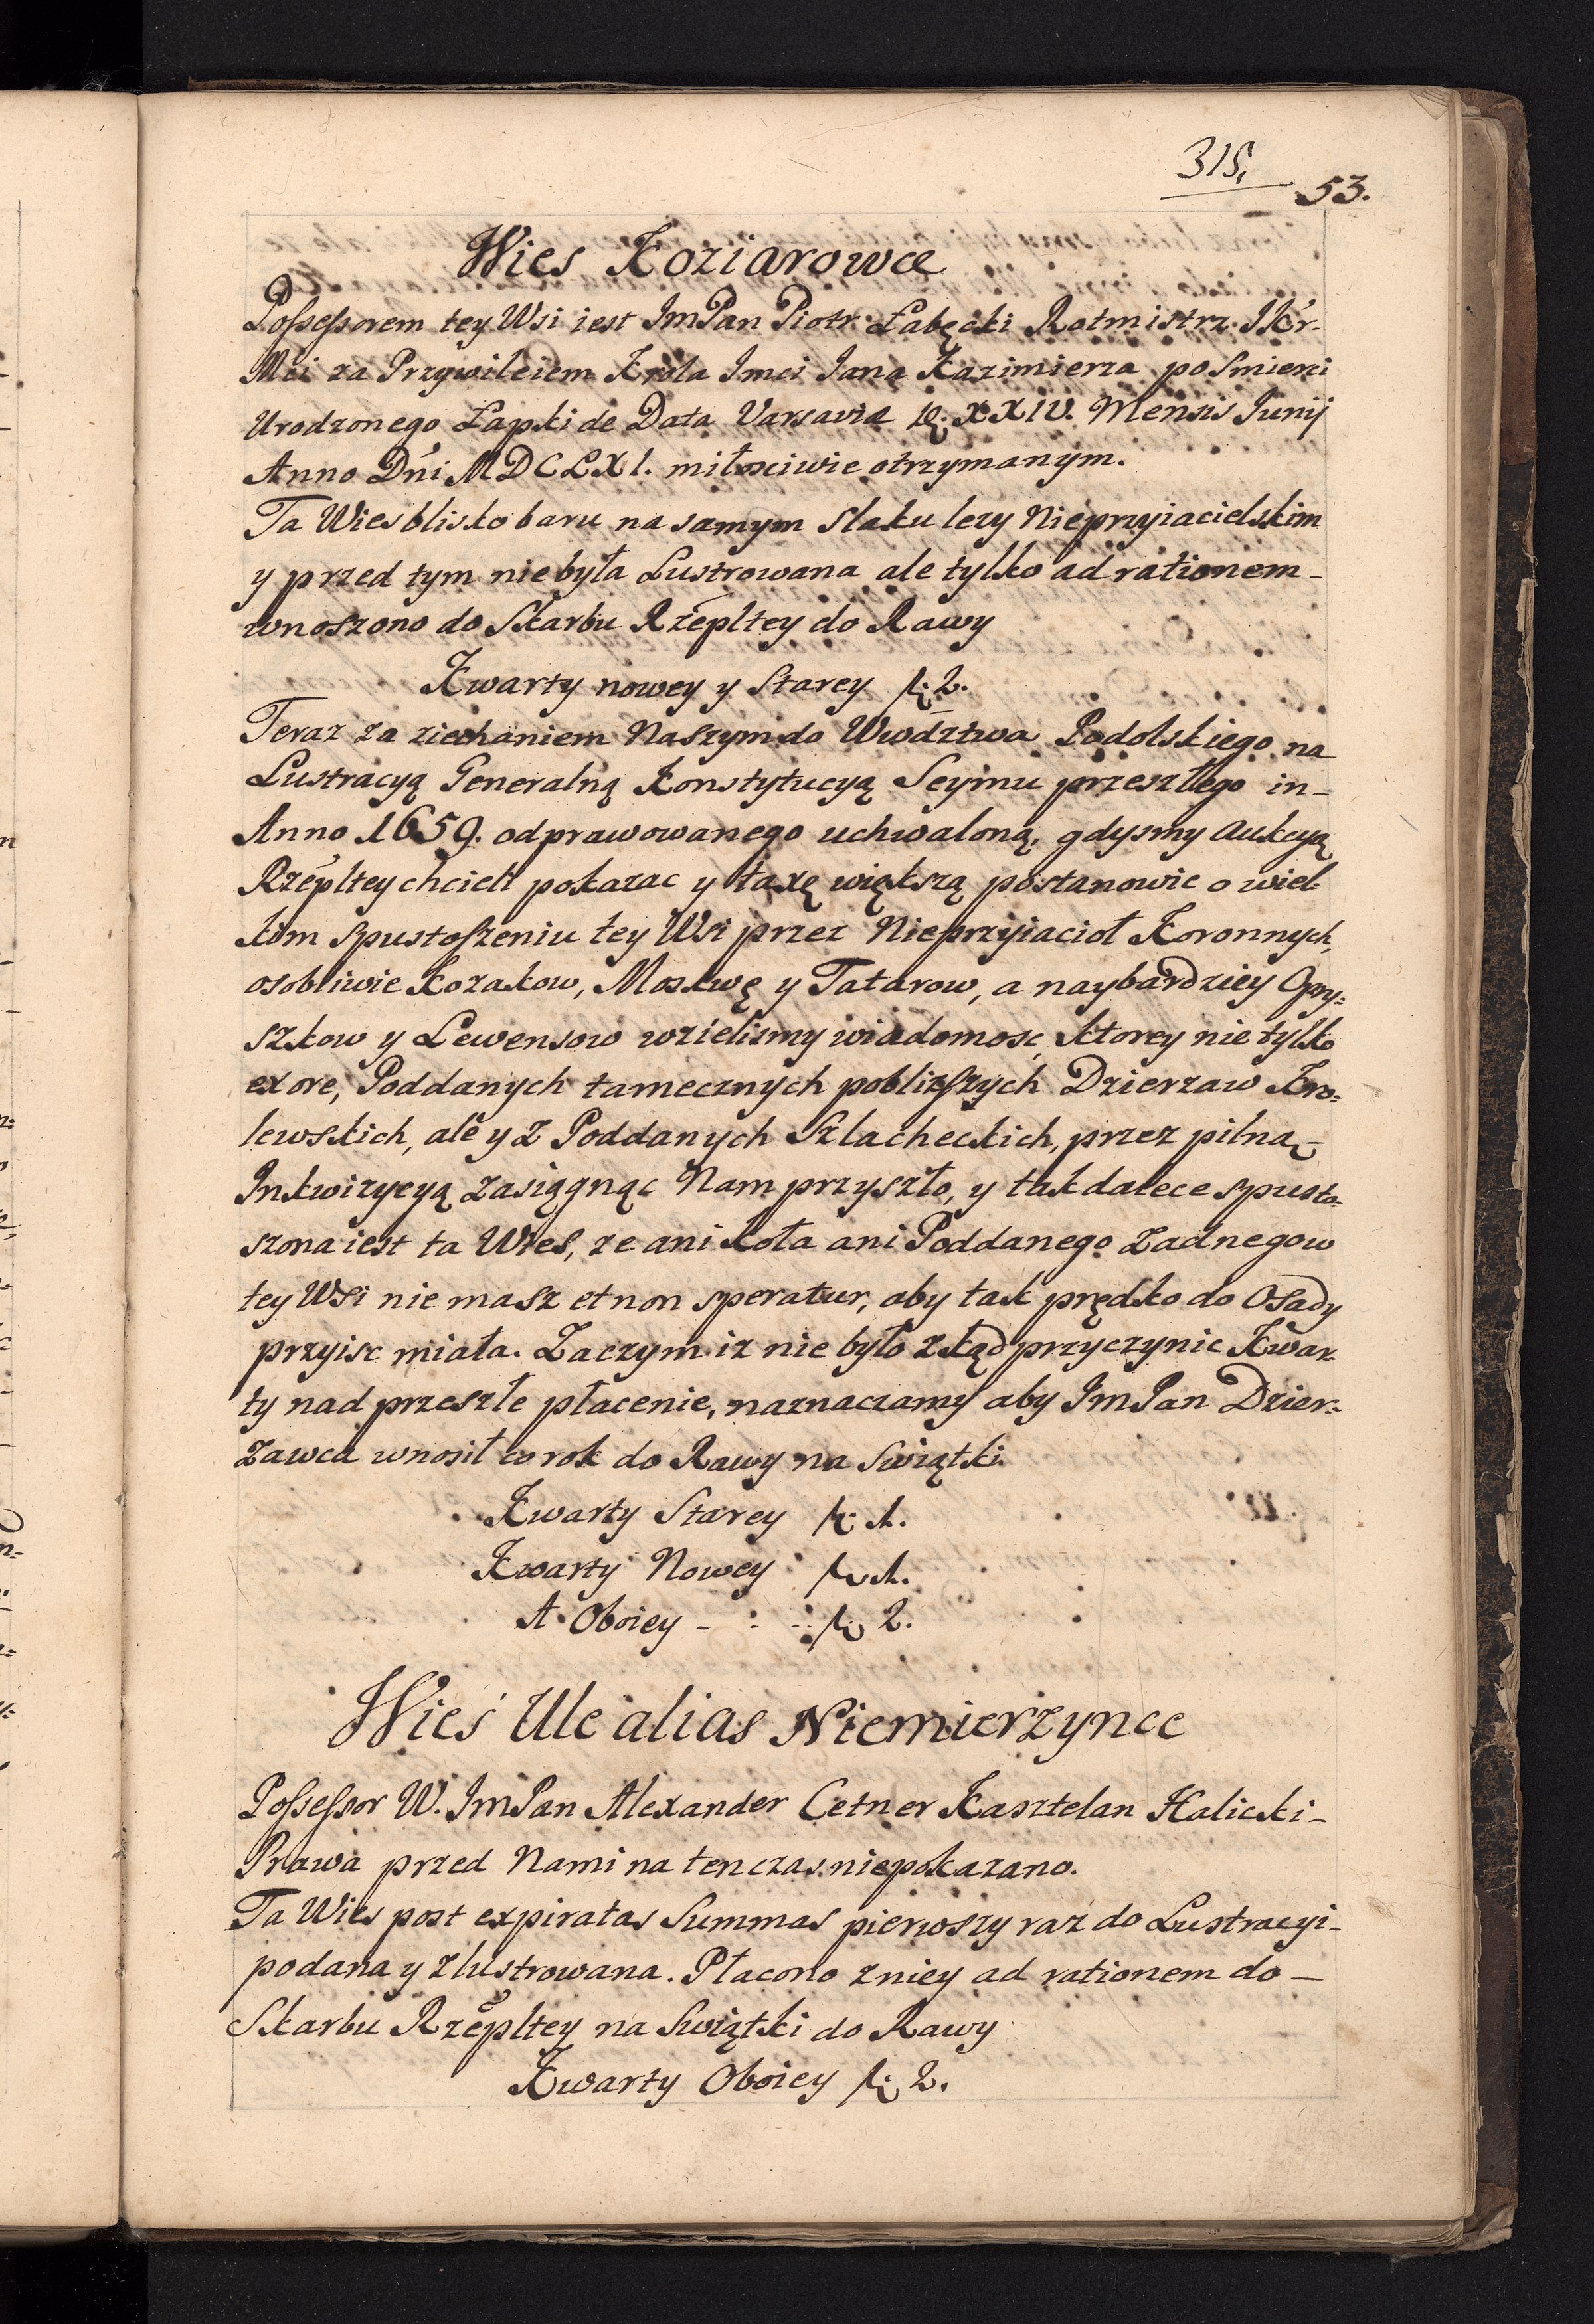 315.
53.
Wies Koziarowce
Possessorem tey Wsi iest ImPan Piotr Łabęcki Rotmistrz JKr-
Mci za Przywileiem Krola Imci Jana Kazimierza po Smierci
Urodzonego Łapki de Data Varsaviæ XXIV. Mensis Junij
Anno Dni MDCLXI. miłosciwie otrzymanym.
Ta Wies blisko baru na samym Slaku lezy Nieprzyiacielskim
y przed tym niebyła Lustrowana ale tylko ad rationem-
wnoszono do Skarbu Rzepltey do Rawy
Kwarty nowey y Starey f. 2.
Teraz za ziechaniem Naszym do Wwdztwa Podolskiego na
Lustracyą Generalną Konstytucyą Seymu przeszłego in-
Anno 1659. odprawowanego uchwaloną, gdysmy Aukcyą
Rzepltey chcieli pokazac y taxę większą postanowic o wiel-
kim spustoszeniu tey Wsi przez Nieprzyiacioł Koronnych,
osobliwie Kozakow, Moskwę y Tatarow, a naybardziey Opry=
szkow y Lewensow wzielismy wiadomosc, ktorey nie tylko
exore, Poddanych tamecznych poblizszych Dzierzaw Kro=
lewskich, ale y z Poddanych Szlacheckich, przez pilną-
Inkwizycyą zasiągnąc Nam przyszło, y tak dalece spusto=
szona iest ta Wies, ze ani koła ani Poddanego Zadnego w
tey Wsi nie masz et non speratur, aby tak prędko do Osady
przyisc miała. Zaczym iz nie było zkąd przyczynic Kwar-
ty nad przeszłe płacenie, naznaczamy aby ImPan Dzier=
zawca wnosił co rok do Rawy na Swiątki
Kwarty Starey f. 1.
Kwarty Nowey f. 1.
A Oboiey - : f. 2.
Wieś Ule alias Niemierzynce
Possessor W. ImPan Alexander Cetner Kasztelan Halicki-
Prawa przed Nami na ten czas niepokazano.
Ta Wies post expiratas Summas pierwszy raz do Lustracyi-
podana y zlustrowana. Płacono zniey ad rationem do-
Skarbu Rzepltey na Swiątki do Rawy
Kwarty Oboiey f. 2.